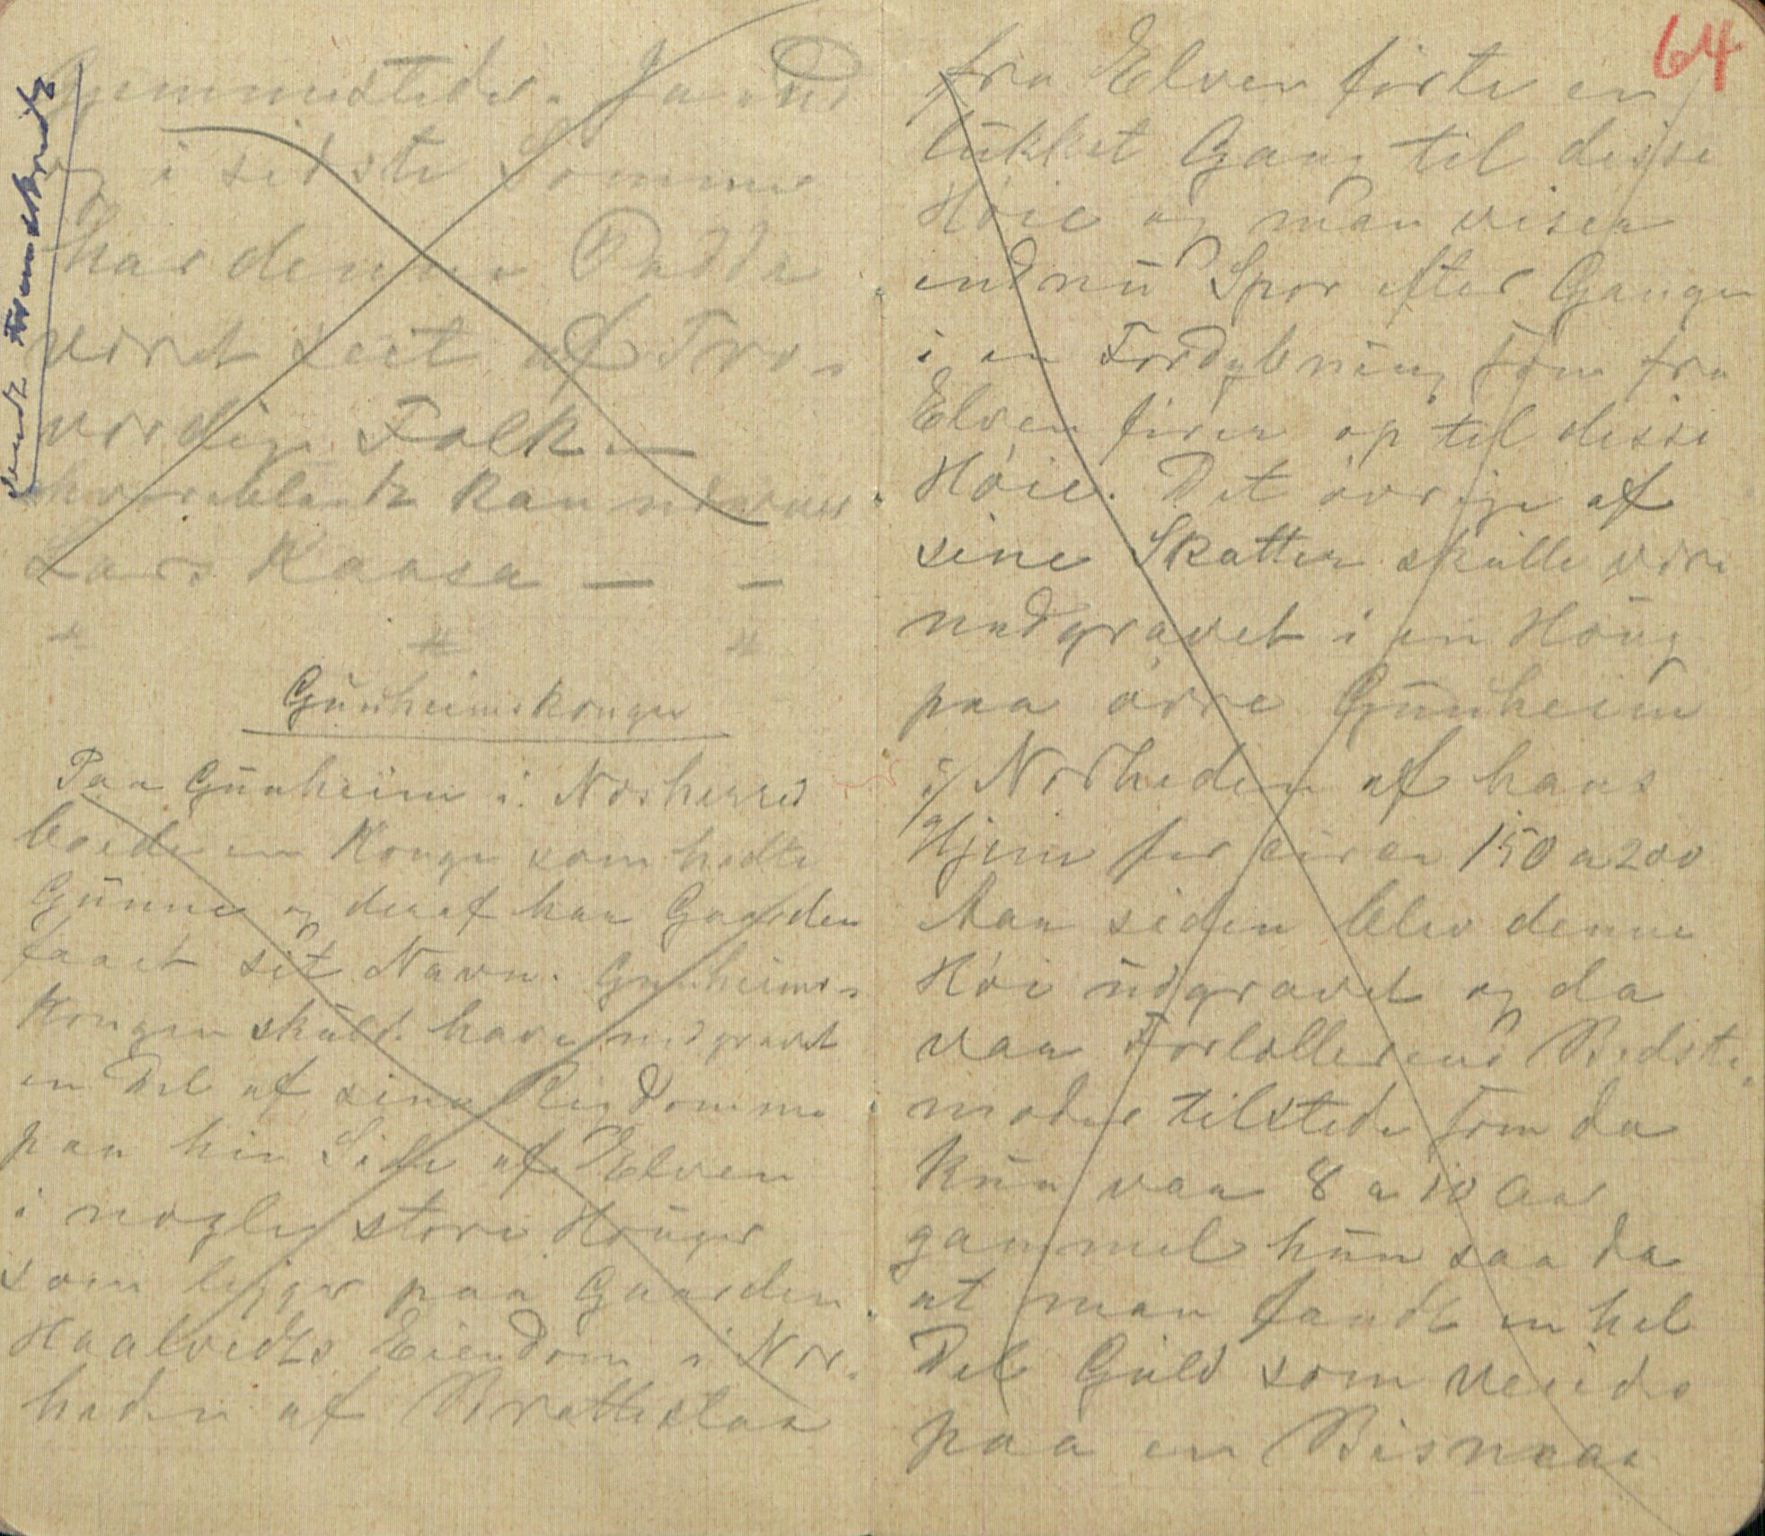 Gjemmesteder. Ja end
og i sidste Sommer
har denne Padda
været seet af Tro-
værdige Folk —
hvoriblandt kan nævnes
Lars Kaasa — —
Gunheimskongen
Paa Gunheim i Nesherred
boede en Konge som hedte
Gunne og deraf har Gaarden
faaet sit Navn. Gunheims-
Kongen skulde have nedgravet
en Del af sine Rigdomme
paa hin Side af Elven
i nogle store Houger
som ligger paa Gaarden
Haalvedts Eiendom i Nær-
heden af Bratteslaa
64
fra Elven førte en
lukket Gang til disse
Høie og man viser
endnu Spor efter Gangen
i en Fordybning som fra
Elven fører op til disse
Høie. Det øvrige af
sine Skatter skulle være
nedgravet i en Houg
paa øvre Gunheim
i Nærheden af hans
Hjem for circa 150 a 200
Aar siden blev denne
Høi udgravet og da
var Fortællerens Bedste-
moder tilstede som da
kun var 8 a 10 Aar
gammel hun saa da
at man fandt en hel
Del Guld som veiedes
paa en Bismaar